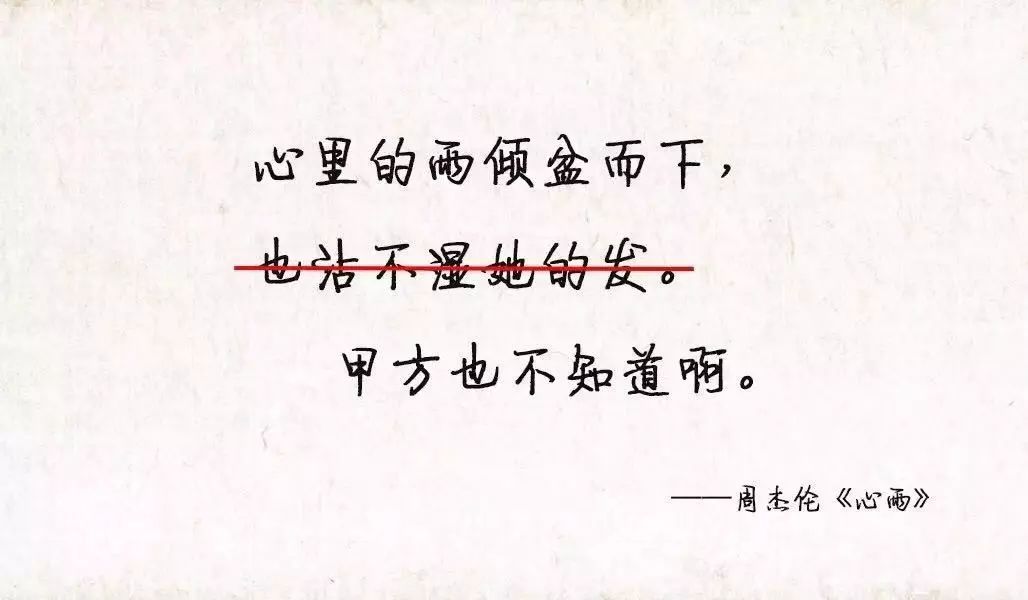 心里的雨倾盆而下，
也沾不湿她的发。
甲方也不知道啊。
——周杰伦《心雨》